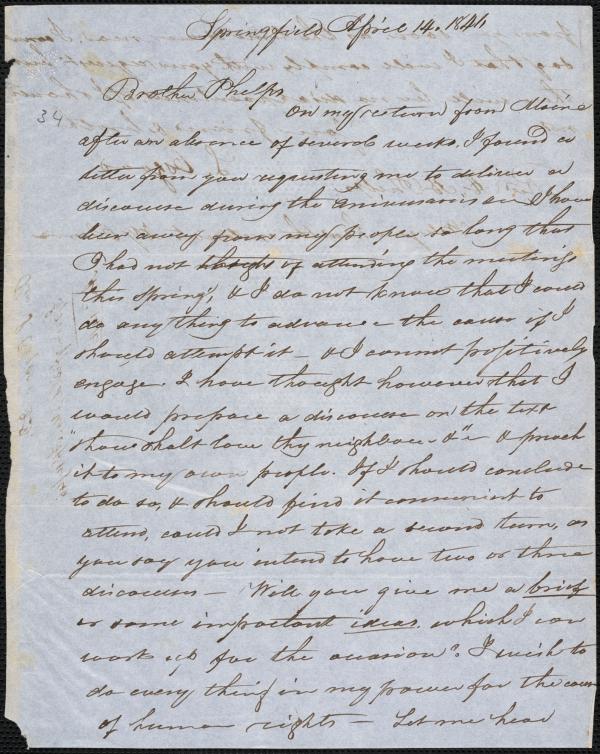 Springfield April 14. 1841
Brother Phelps
34
On my return from Maine
after an absence of several weeks, I found a
letter from you requesting me to deliver a
discourse during the anniversaries I have
been away from my people so long that
I had not thought of attending the meetings
"this Spring", & I do not know that I could
do any thing to advance the cause if I
should attempt it — & I cannot positively
engage. I have thought however that I
would prepare a discourse on the text
"thou shalt love thy neighbour &" & preach
it to my own people. If I should conclude
to do so, & should find it convenient to
attend, could I not take a second turn, as
you say you intend to have two or three
discourses — Will you give me a brief
or some important ideas which I can
work up for the occasion? I wish to
do every thing in my power for the cause
of human rights — Let me hear